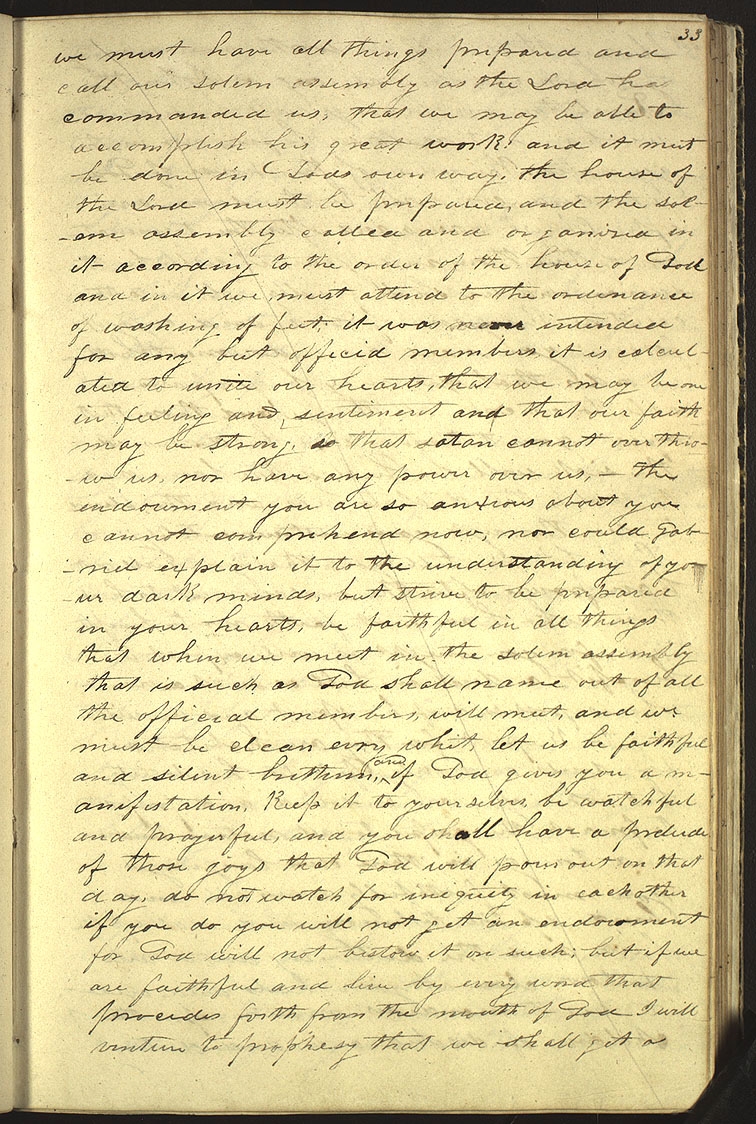 33
we must have all things prepared and
call our solem assembly as the Lord ha
commanded us, that we may be able to
accomplish his great work: and it must
be done in Gods own way, the house of
the Lord must be prepared, and the sol-
-em assembly called and organized in
it according to the order of the house of God
and in it we must attend to the ordinance
of washing of feet; it was never intended
for any but official members, it is calcul-
ated to unite our hearts, that we may be one
in feeling and sentiment and that our faith
may be strong, so that satan cannot over thro-
-w us, nor have any power over us, – the
endowment you are so anxious about you
cannot comprehend now, nor could Gab-
-riel explain it to the understanding of yo-
-ur dark minds, but strive to be prepared
in your hearts, be faithful in all things
that when we meet in the solem assembly
that is such as God shall name out of all
the official members, will meet, and we
must be clean evry whit, let us be faithful
and silent brethren, and if God gives you a m-
anifestation, keep it to yourselves, be watchful
and prayerful, and you shall have a prelude
of those joys that God will pour out on that
day, do not watch for iniquity in each other
if you do you will not get an endowment
for God will not bestow it on such; but if we
are faithful and live by every word that
procedes forth from the mouth of God I will
venture to prophesy that we shall get a